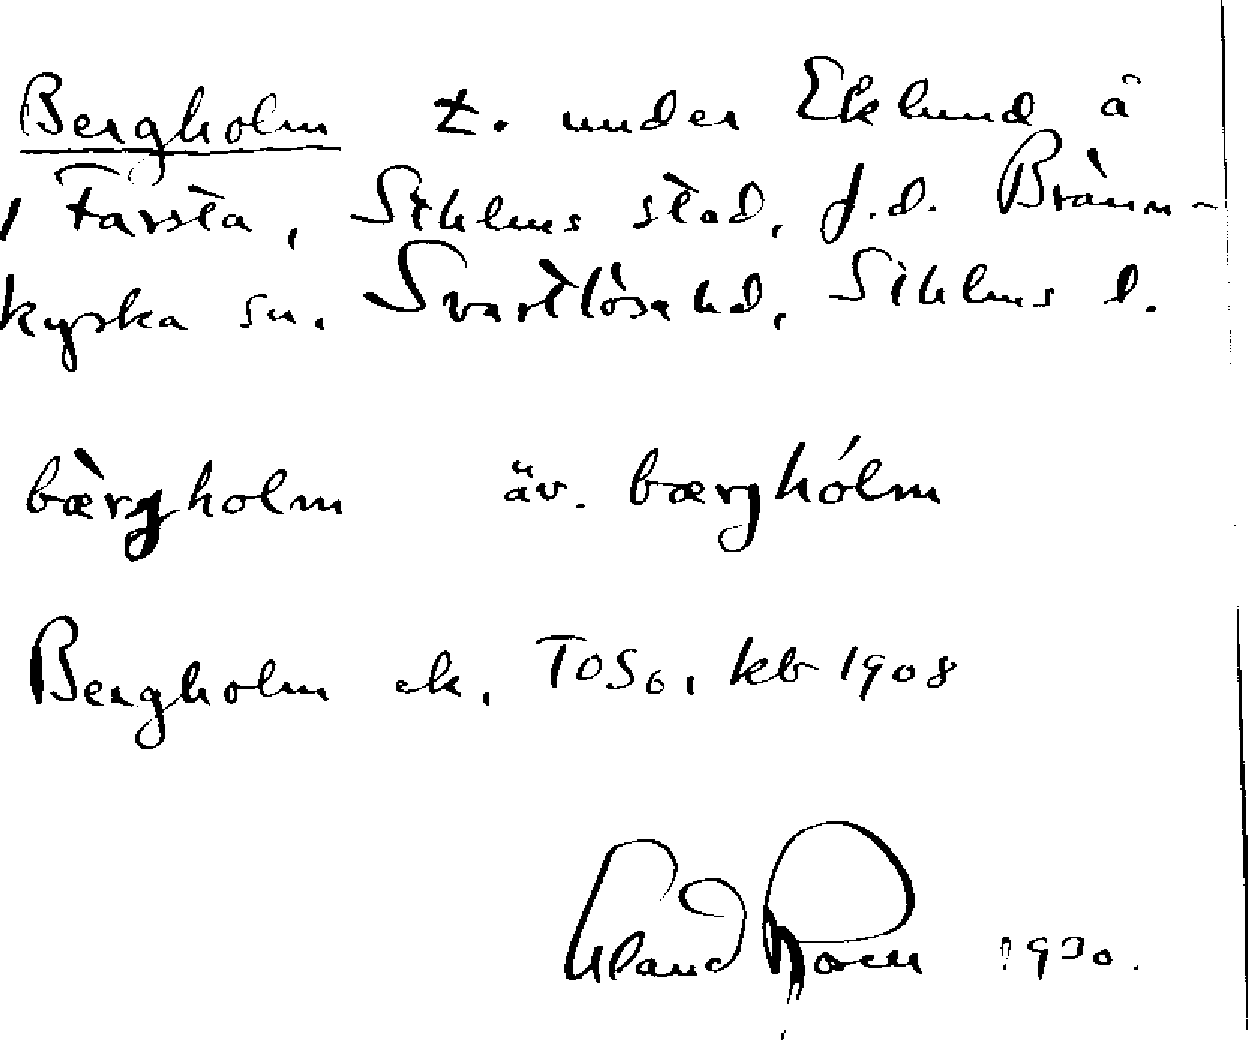 Bergholm t. under Eklund å
Farsta, Sthlms stad, f.d. Bränn-
kyrka sn. Svartlösa hd, Sthlms l.
bærgholm äv. bærghólm
Bergholm ek, TOS6, kb 1908
Roland 1930.